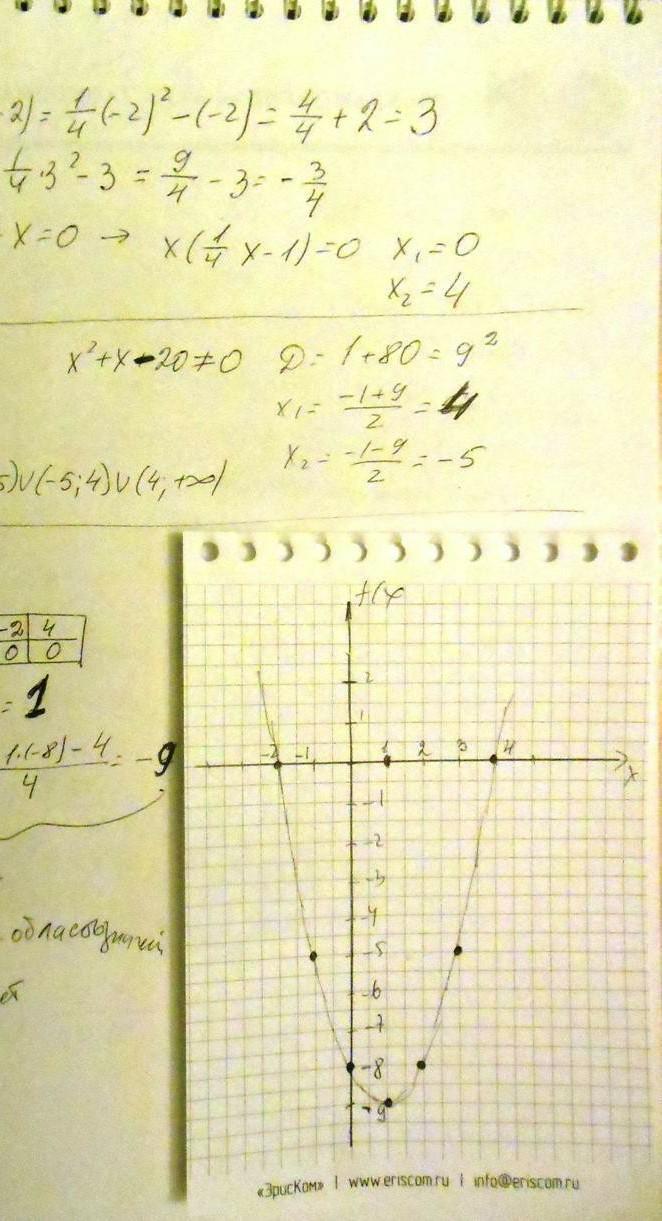 -2) = 1/4 (-2)² - (-2) = 4/4 + 2 = 3
1/4 · 3² - 3 = 9/4 - 3 = - 3/4
- x = 0 → x(1/4 x - 1) = 0 x₁ = 0
x₂ = 4
x² + x - 20 ≠ 0 D = 1 + 80 = 9²
x₁ = (-1+9)/2 = 4
x₂ = (-1-9)/2 = -5
5) ∪ (-5; 4) ∪ (4; +∞)
-2 | 4
0 | 0
= 1
(1·(-8) - 4)/4 = -9
f(x
2
1
-2 -1 1 2 3 4
x
-1
-2
-3
-4
-5
-6
-7
-8
-9
«ЭрисКом» | www.eriscom.ru | info@eriscom.ru